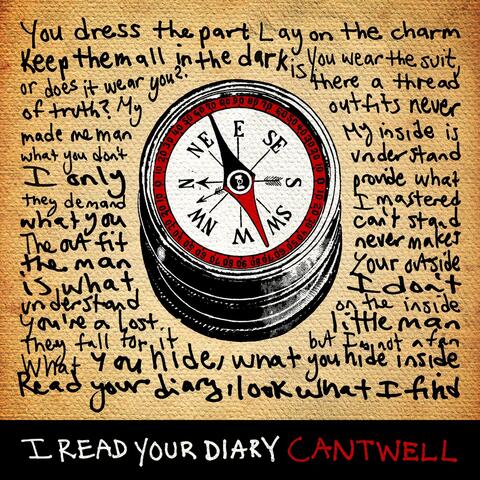 You dress the part Lay on the charm
Keep them all in the dark You wear the suit,
or does it wear you? is there a thread
of truth? My outfits never
made me man My inside is
what you don't understand
I only provide what
they demand I mastered
what you can't stand
The outfit never makes
the man Your outside
is what I don't
understand on the inside
You're a lost little man
they fall for it but I'm not a fan
What you hide, what you hide inside
Read your diary, look what I find
NE E SE
N S
NW W SW
I READ YOUR DIARY CANTWELL